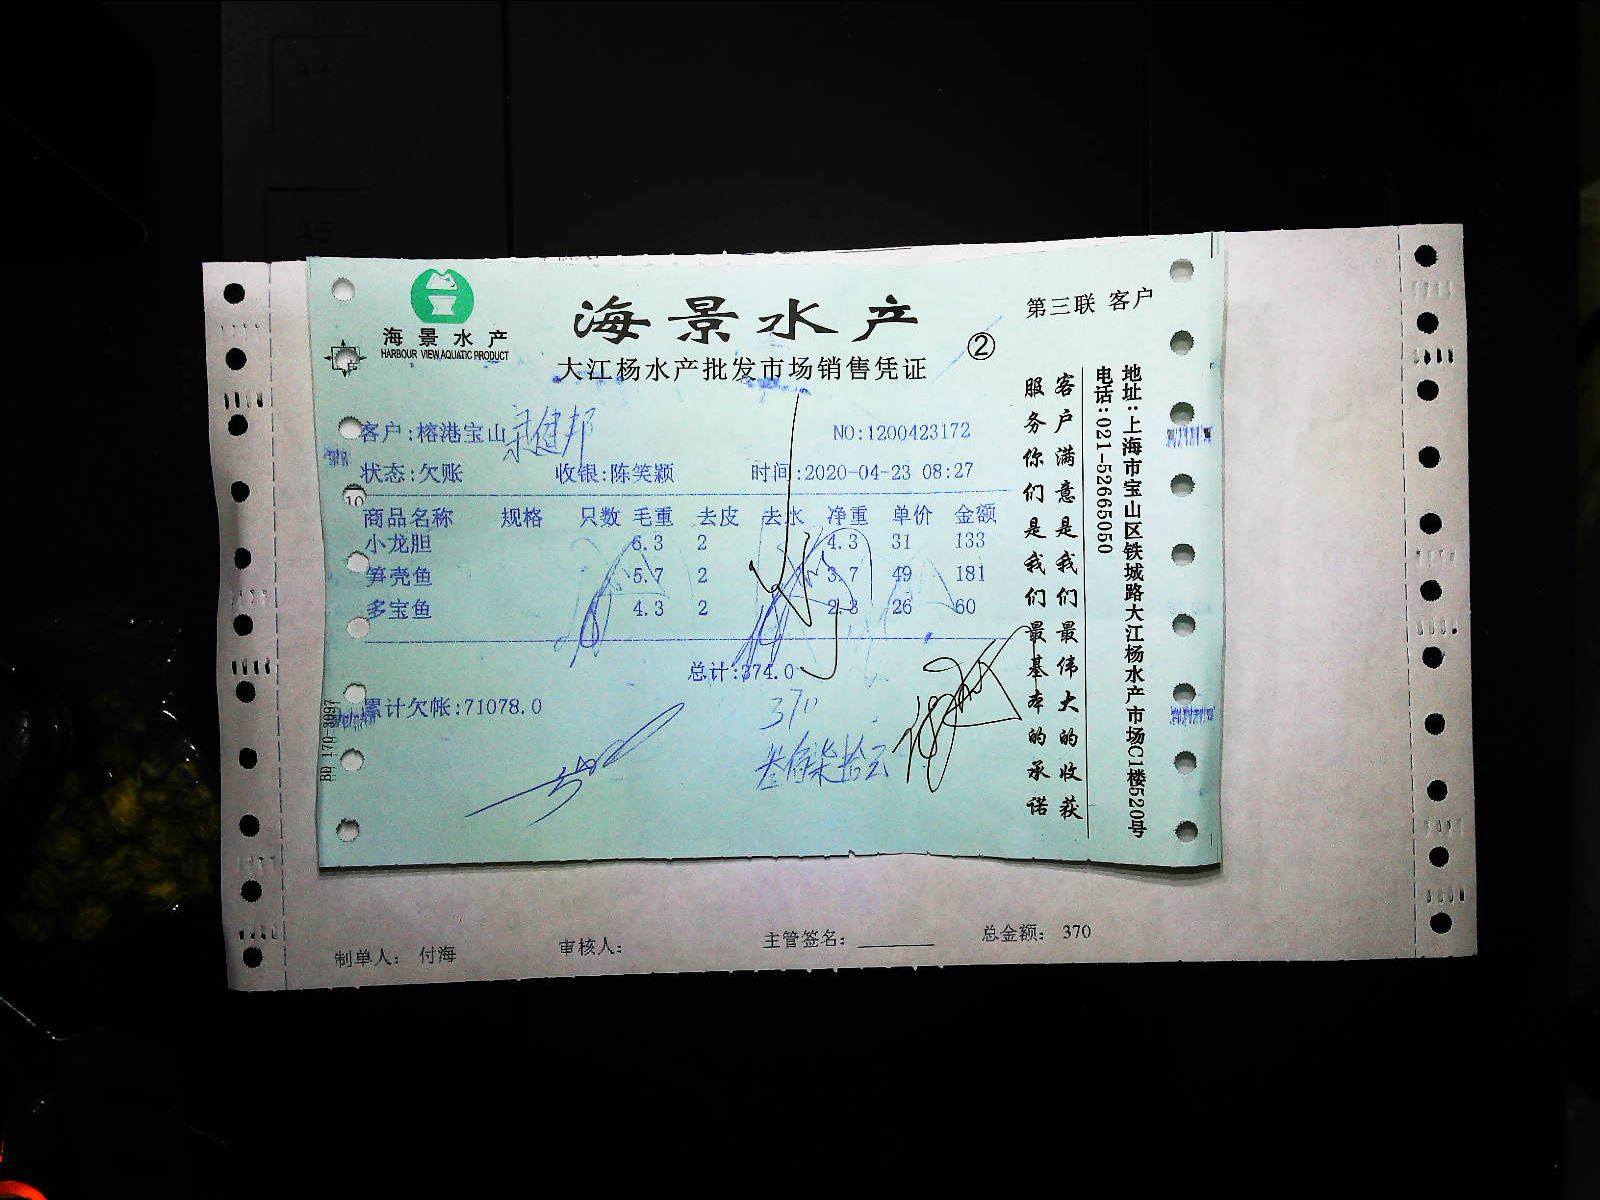 海景水产
HARBOUR VIEW AQUATIC PRODUCT
海景水产
大江杨水产批发市场销售凭证
②
第三联 客户
客户:榕港宝山
NO:1200423172
状态:欠账 收银:陈笑颖 时间:2020-04-23 08:27
商品名称 规格 只数 毛重 去皮 去水 净重 单价 金额
小龙胆 6.3 2 4.3 31 133
笋壳鱼 5.7 2 3.7 49 181
多宝鱼 4.3 2 2.3 26 60
总计:374.0
累计欠帐:71078.0
370
叁佰柒拾元
地址:上海市宝山区铁城路大江杨水产市场C1楼520号
电话:021-52665050
客户满意是我们最伟大的收获
服务你们是我们最基本的承诺
BD 170-3097
10
制单人: 付海 审核人: 主管签名: 总金额: 370
A4
A5